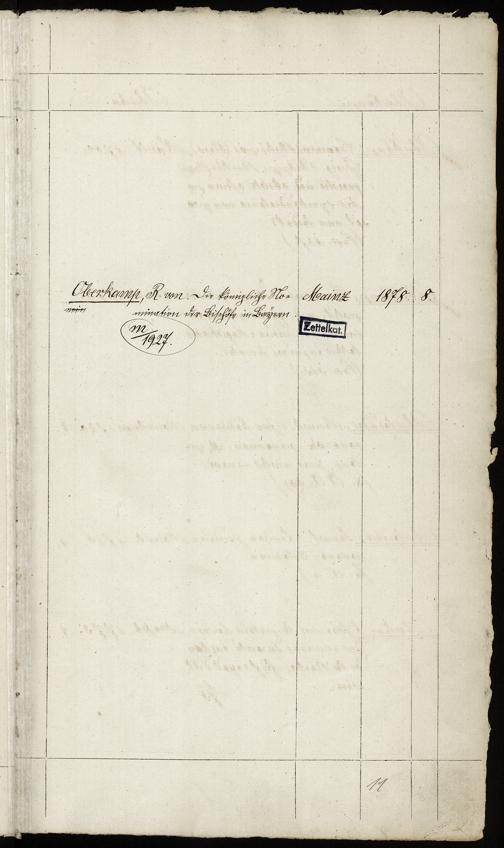 Oberkamp, R. von. Die königliche No= Mainz 1878. 8.
mination der Bischöfe in Bayern.
Zettelkat.
m/1927.
11